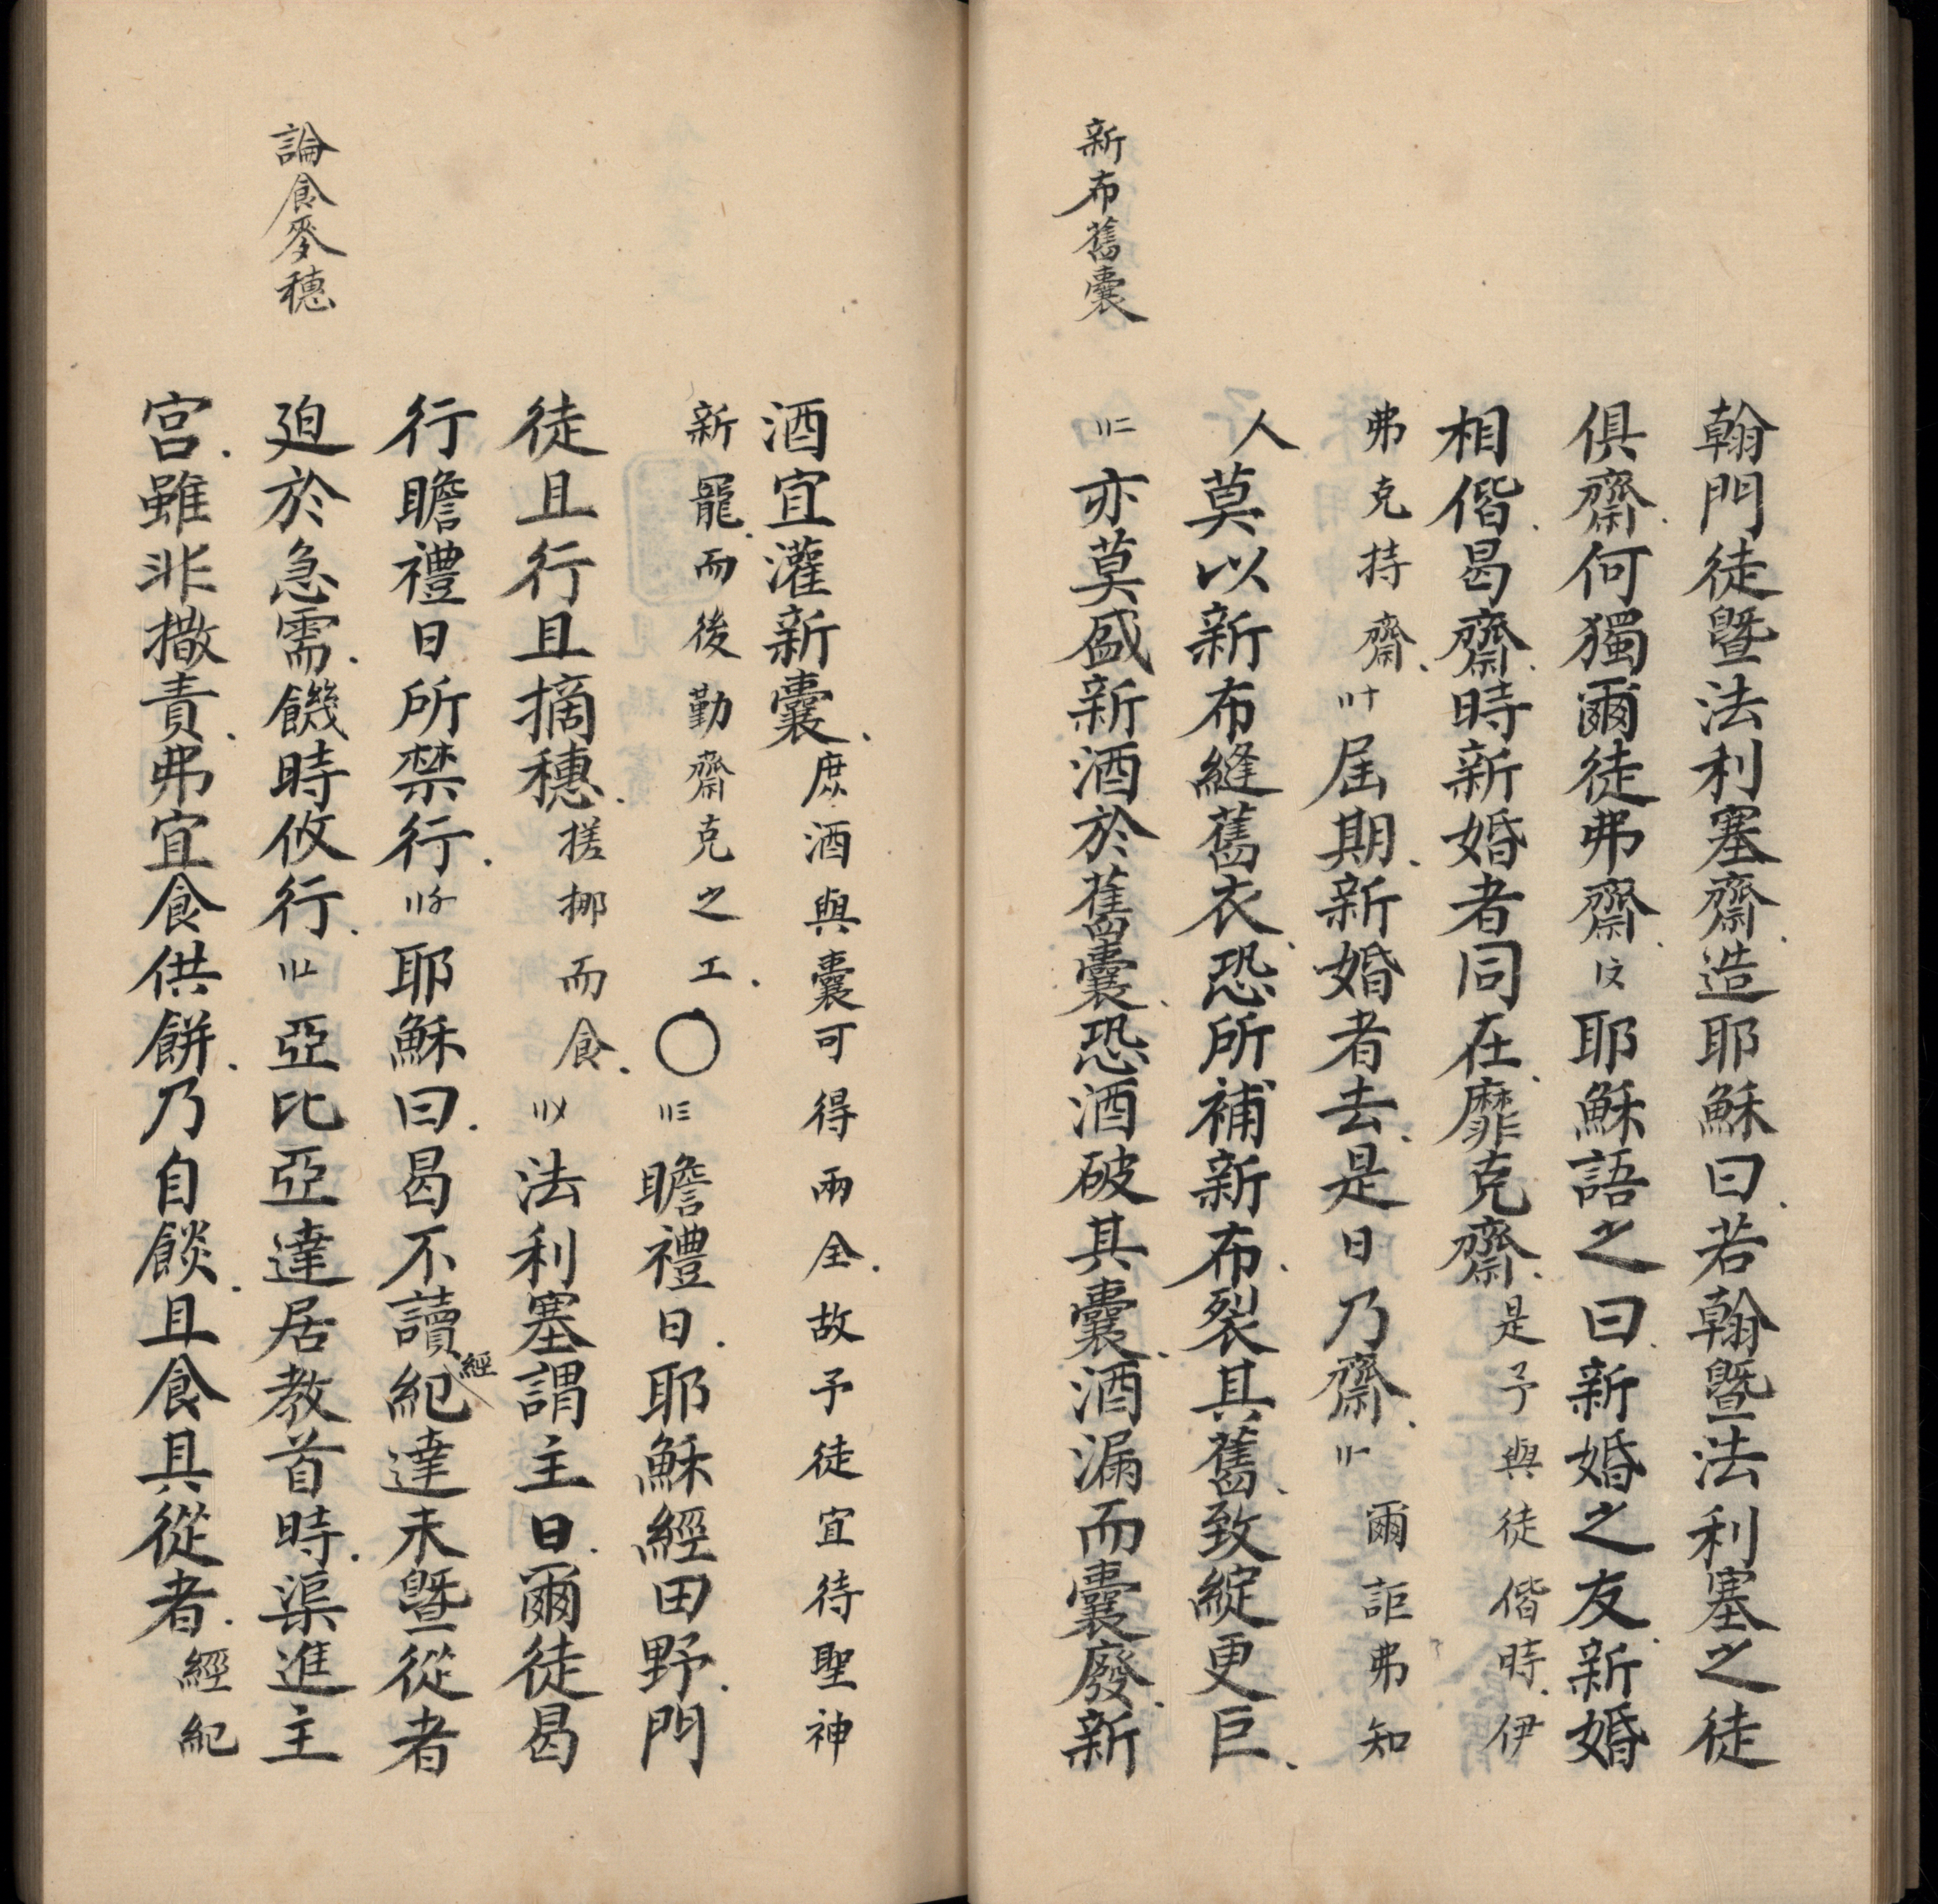 新布舊囊
翰門徒暨法利塞齋造耶穌曰若翰暨法利塞之徒
俱齋何獨爾徒弗齋〢文耶穌語之曰新婚之友新婚
相偕曷齋時新婚者同在靡克齋是予與徒偕時伊
弗克持齋〢〡十屆期新婚者去是日乃齋〢〡一爾詎弗知
人莫以新布縫舊衣恐所補新布裂其舊致綻更巨
〢〡二亦莫盛新酒於舊囊恐酒破其囊酒漏而囊廢新
論食麥穗
酒宜灌新囊庶酒與囊可得兩全故予徒宜待聖神
新寵而後勤齋克之工〇〢〡三瞻禮日耶穌經田野門
徒且行且摘穗搓挪而食〢〡〤法利塞謂主曰爾徒曷
行瞻禮日所禁行〢〡〥耶穌曰曷不讀經紀達未暨從者
廹於急需饑時攸行〢〡〦亞比亞達居教首時渠進主
宮雖非撒責弗宜食供餅乃自餤且食其從者經紀